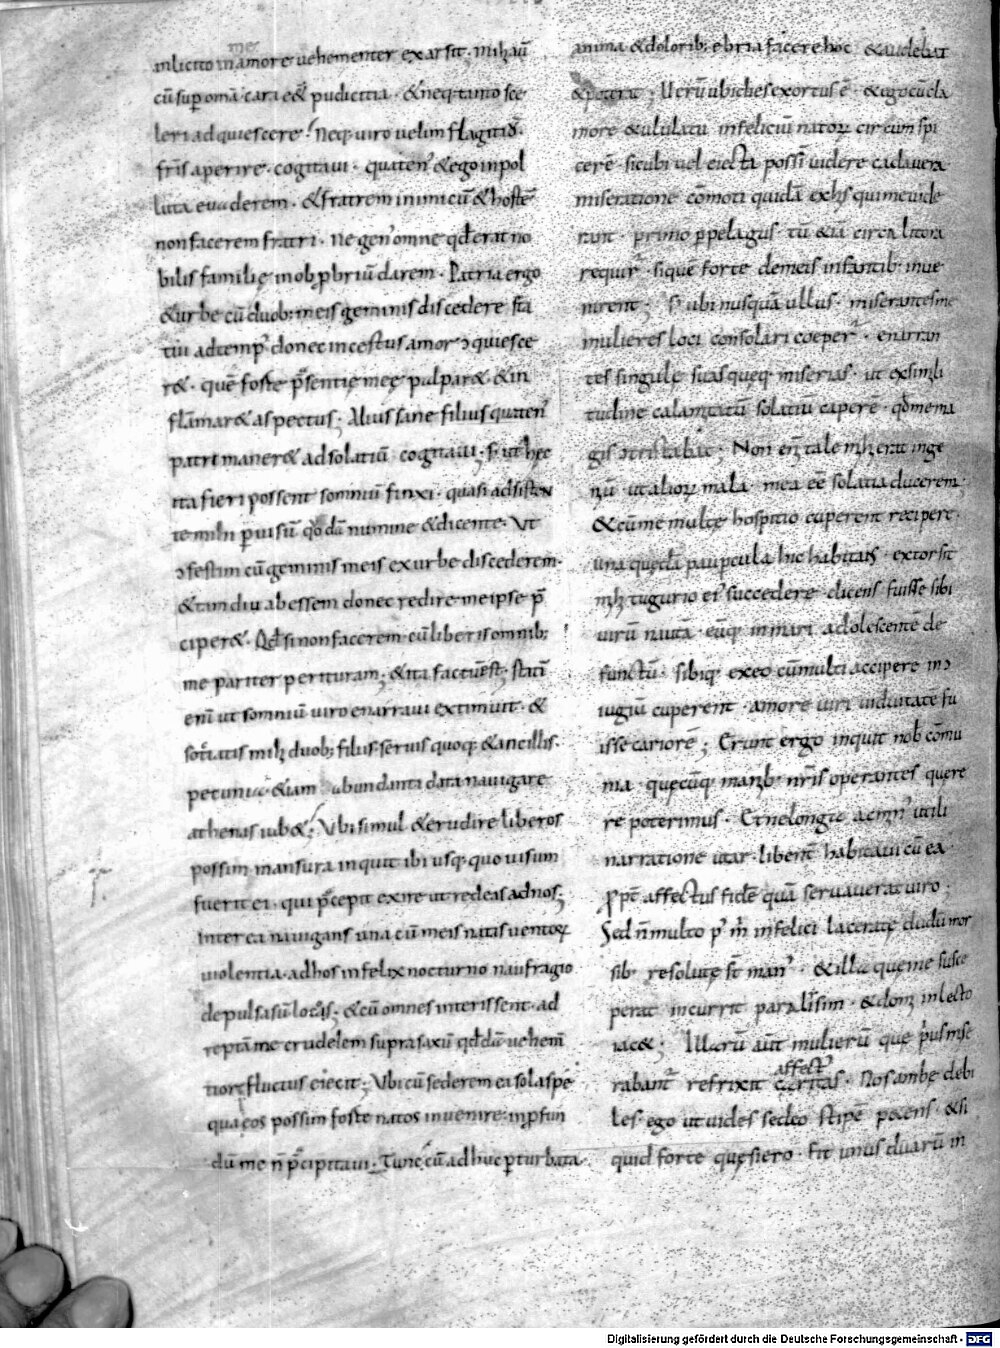 me
inlicito inamore uehementer exarsit. mihi aū
cū sup̄ omīa cara eēt pudicitia. &neq; tanto sce
leri adquiescere. neq; uiro uelim flagitiū
fr̄is aperire. cogitaui. quaten' &ego inpol
luta euaderem. &fratrem inimicū &hostē
non facerem fratri. ne gen' omne qđ erat no
bilis familię in obprobriū darem. Patria ergo
&urbe cū duob; meis geminis discedere sta
tui ad temp' donec incestus amor ↄquiesce
r&. quē foste p̄sentię meę palpar& &in
flāmar& aspectus; Alius sane filius quaten'
patri maner& ad solatiū cogitaui. s; ut hęc
ita fieri possent somniū finxi. quasi adsisten
te mihi p uisū quodā numine &dicente. Ut
ↄfestim cū geminis meis ex urbe discederem.
&tam diu abessem donec redire me ipse p̄
ciper&. Qđ si non facerem cū liberis omnib;
me pariter perituram; &ita factū est; statī
enī ut somniū uiro enarraui extimuit. &
sotiatis mihi duob; filiis seruis quoq; &ancillis.
pecunia &iam abundanti data nauigare
athenas iub&; Ubi simul &erudire liberos
possim mansura inquit ibi usq; quo uisum
fuerit ei. qui p̄cepit exire ut redeas ad nos;
Interea nauigans una cū meis natis uentoꝝ
uiolentia. ad hos infelix nocturno naufragio
depulsa sū locos; &cū omnes interissent. ad
reptā me crudelem supra saxū qđdā uehem
tior fluctus eiecit; Ubi cū sederem ea sola spe
qua eos possim foste natos inuenire. in pfun
dū me n̄ p̄cipitaui. Tunc cū adhuc pturbata
anima &dolorib; ebria facere hoc &audebat
&poterat; Uerū ubi dies exortus ē. &ego cū cla
more &ululatu infelicium natoꝝ circumspi
cerē sicubi uel eiecta possī uidere cadauera
miseratione cōmoti quidā ex his qui me uide
rant. primo p pelagus tū &iā circa litora
requir̄. si que forte de meis infantib; inue
nirent; S; ubi nusquā ullus. miserantes me
mulieres loci consolari coeper̄. enarran
tes singulę suas quęq; miserias. ut ex simili
tudine calamitatū solatiū caperē. qđ me ma
gis ↄtristabat; Non enī tale mihi erat inge
niū ut alioꝝ mala mea eē solatia ducerem
&cū me multę hospitio cuperent recipere.
una quędā paupcula hic habitans. extorsit
mihi tugurio ei' succedere. dicens fuisse sibi
uirū nautā. eūq; in mari adolescentē de
functū. sibiq; ex eo cū multi accipere in ↄ
iugiū cuperent. amore uiri uiduitatē fu
isse cariorē; Erunt ergo inquit nob cōmu
nia. quęcūq; manib; nr̄is operantes quere
re poterimus. Et ne longe ac minꝰ utili
narratione utar. libent' habitaui cū ea.
Ppt' affectus fidē quā seruauerat uiro;
Sed n̄ multo p' m̄ infelici laceratę dudū mor
sib; resolutę st̄ man'. &illa que me susce
perat incurrit paralisim. &domi in lecto
iac&; Illarū aut̄ mulierū que p̄us mise
affect'
rabant' refrixit caritas. Nos ambę debi
les. ego ut uides sedeo stipē petens. &si
quid forte quęsiero. fit unus duarū in
Digitalisierung gefördert durch die Deutsche Forschungsgemeinschaft - DFG